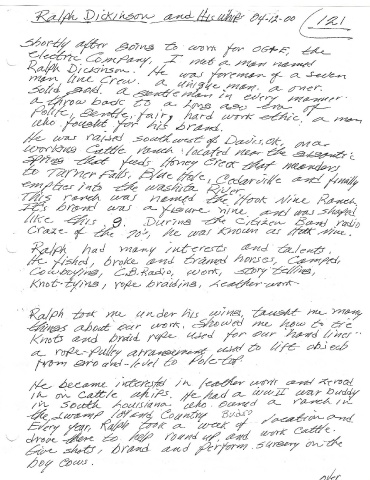 Ralph Dickinson and His whips 04-12-00 (121)
Shortly after going to work for OG&E, the
electric company, I met a man named
Ralph Dickinson. He was foreman of a seven
man line crew. a unique man. a oner.
Solid gold. a gentleman in every manner.
a throw back to a long ago era of
Polite, gentle, fair, hard work ethic, a man
who fought for his brand.
He was raised southwest of Davis, OK, on a
working Cattle ranch. located near the
spring that feeds Honey Creek that meanders
to Turner Falls, Blue Hole, Cedarville and finally
empties into the washita River.
This ranch was named the Hook Nine Ranch
It's brand was a figure nine and was shaped
like this 9. During the Citizen Band radio
craze of the 70's, he was known as Hook Nine.
Ralph had many interests and talents.
He fished, broke and trained horses, Camped,
Cowboying, C.B. Radio, work, story telling,
Knot-tying, rope braiding, Leather work
Ralph took me under his wing, taught me many
things about our work, showed me how to tie
Knots and braid rope used for our hand line--
a rope-pulley arrangement used to lift objects
from ground-level to Pole-top.
He became interested in leather work and zeroed
in on Cattle whips. He had a WWII war buddy
in South Louisiana who owned a ranch in
the swamp and Country
Every year, Ralph took a week of vacation and
drove there to help round up, and work Cattle.
Give shots, brand and perform surgery on the
boy cows.
over